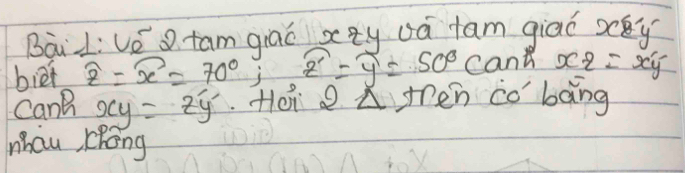 Bài 1: Vẽ 2 tam giác xzy và tam giác x'z'y'
biết ẑ = x̂' = 70° ; ẑ' = ŷ = 50° cạnh xz = x'y'
cạnh xy = z'y'. Hỏi 2 Δ trên có bằng
nhau không